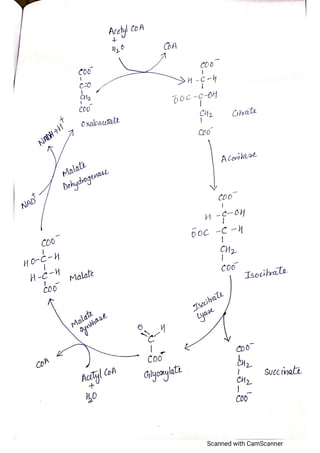 Acetyl CoA
+
H2O
CoA
COO⁻
C=O
CH2
COO⁻
Oxaloacetate
COO⁻
H-C-H
⁻OOC-C-OH
CH2
COO⁻
Citrate
Aconitase
COO⁻
H-C-OH
⁻OOC-C-H
CH2
COO⁻
Isocitrate
Isocitrate
Lyase
COO⁻
CH2
CH2
COO⁻
Succinate
O H
C
COO⁻
Glyoxylate
Acetyl CoA
+
H2O
CoA
Malate
synthase
COO⁻
HO-C-H
H-C-H
COO⁻
Malate
Malate
Dehydrogenase
NAD⁺
NADH+H⁺
Scanned with CamScanner